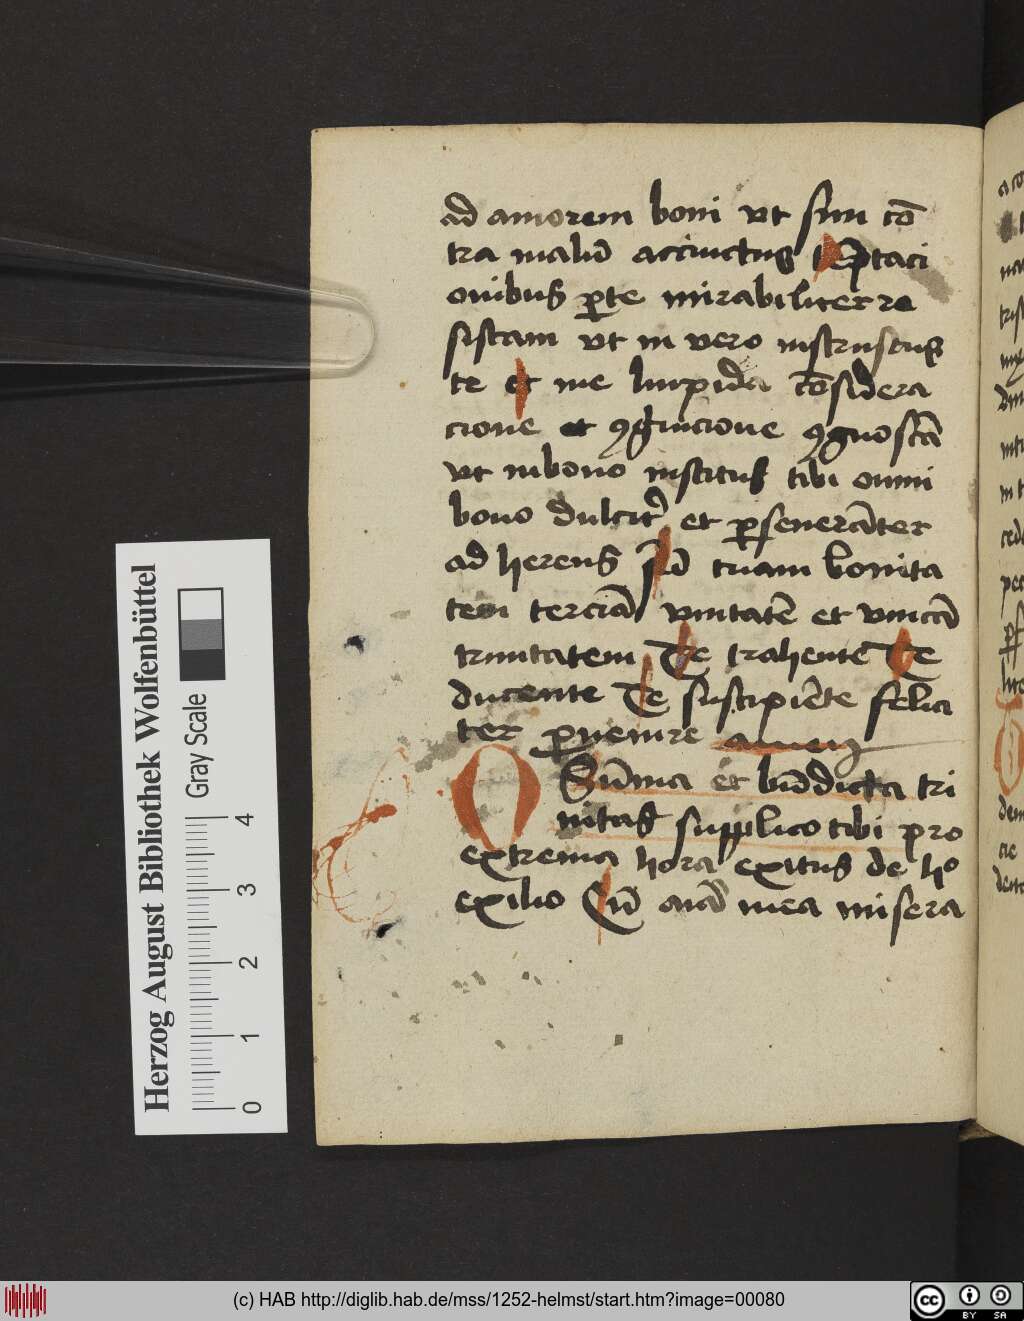 ad amorem boni vt sim cō
tra malū accinctus tēptaci
onibus ꝑte mirabiliter re
sistam vt in vero instructus
te et me limpida cōsidera
cione et ꝯgnicione ꝯgnoscā
vt in bono institus tibi omni
bono dulcit᷑ et ꝑseuerāter
ad herens tuam bonita
tem terciā vnitatē et vnicā
trinitatem Te trahente Te
ducente Te suscipiēte felici
ter ꝑuenire amen
O Sūma et bn̄dicta tri
nitas supplico tibi pro
extrema hora exitus de ho
exilio Cū aīa mea misera
Herzog August Bibliothek Wolfenbüttel
Gray Scale
0 1 2 3 4
(c) HAB http://diglib.hab.de/mss/1252-helmst/start.htm?image=00080
cc BY SA